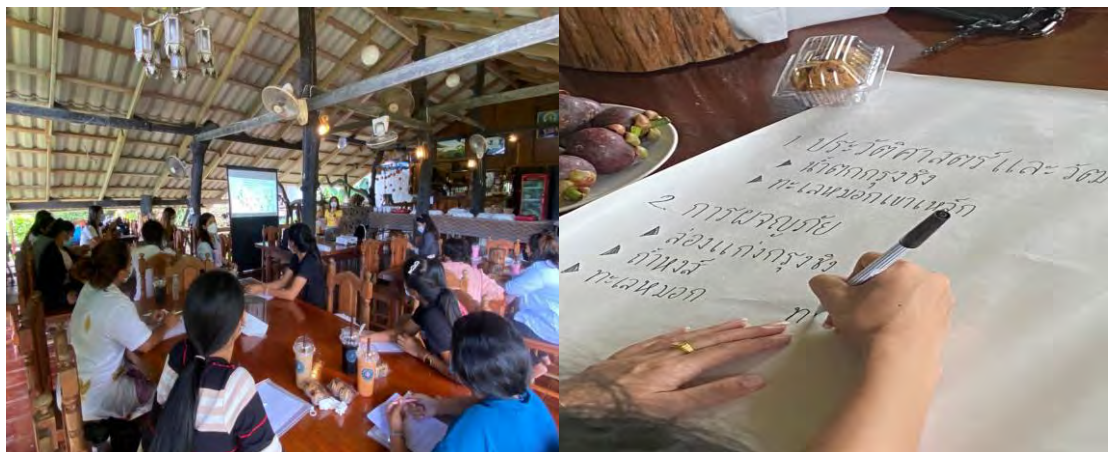 1. ประวัติศาสตร์และ วัฒ
▶ น้ำตกกรุงชิง
▶ ทะเลหมอกเขาเหล็ก
2. การผจญภัย
▶ ล่องแก่งกรุงชิง
▶ ถ้ำหงส์
▶ ทะเลหมอก